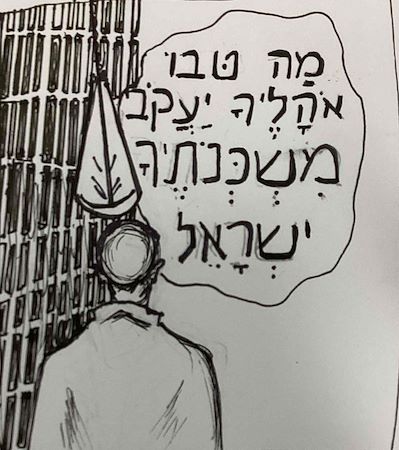 מַה טֹּבוּ
אֹהָלֶיךָ יַעֲקֹב
מִשְׁכְּנֹתֶיךָ
יִשְׂרָאֵל